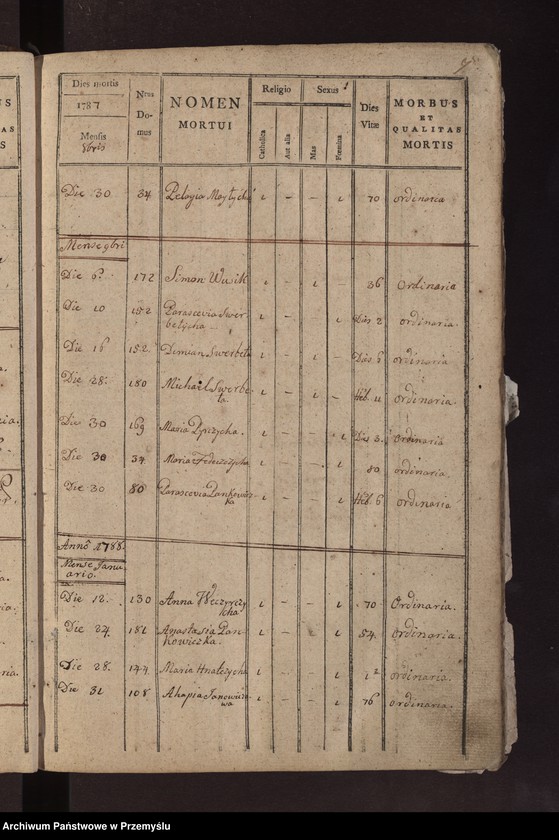 Dies mortis
1787
Mensis
8bris
Nrus
Domus
NOMEN
MORTUI
Religio
Catholica
Aut alia
Sexus
Mas
Femina
Dies
Vitæ
MORBUS
ET
QUALITAS
MORTIS
Die 30 34 Pelagia ι - - ι 70 ordinaria
Mense 9bri
Die 6ª 172 Simon ι - ι - 36 Ordinaria
Die 10 152 Parascevia Swer-
betycha ι - - ι Dies 2 ordinaria.
Die 16 152. Demian Swerbeta ι - ι - Dies 6 ordinaria
Die 28. 180 Michael Swerbe-
ta ι - ι - Heb. 11 ordinaria.
Die 30 169 Maria ι - - ι Dies 3. ordinaria
Die 30 34. Maria ι - - ι 80 ordinaria.
Die 30 80 Parascevia Pankowicz-
ka ι - - ι Heb. 6 ordinaria
Anno 1788.
Mense Janu-
ario.
Die 12. 130 Anna ι - - ι 70 Ordinaria.
Die 24. 181 Anastasia Pan-
kowiczka. ι - - ι 54. Ordinaria.
Die 28. 144 Maria Hnatczycha ι - - ι ordinaria.
Die 31 108 Ahapia Janowicz-
wa ι - - ι 76 ordinaria.
Archiwum Państwowe w Przemyślu